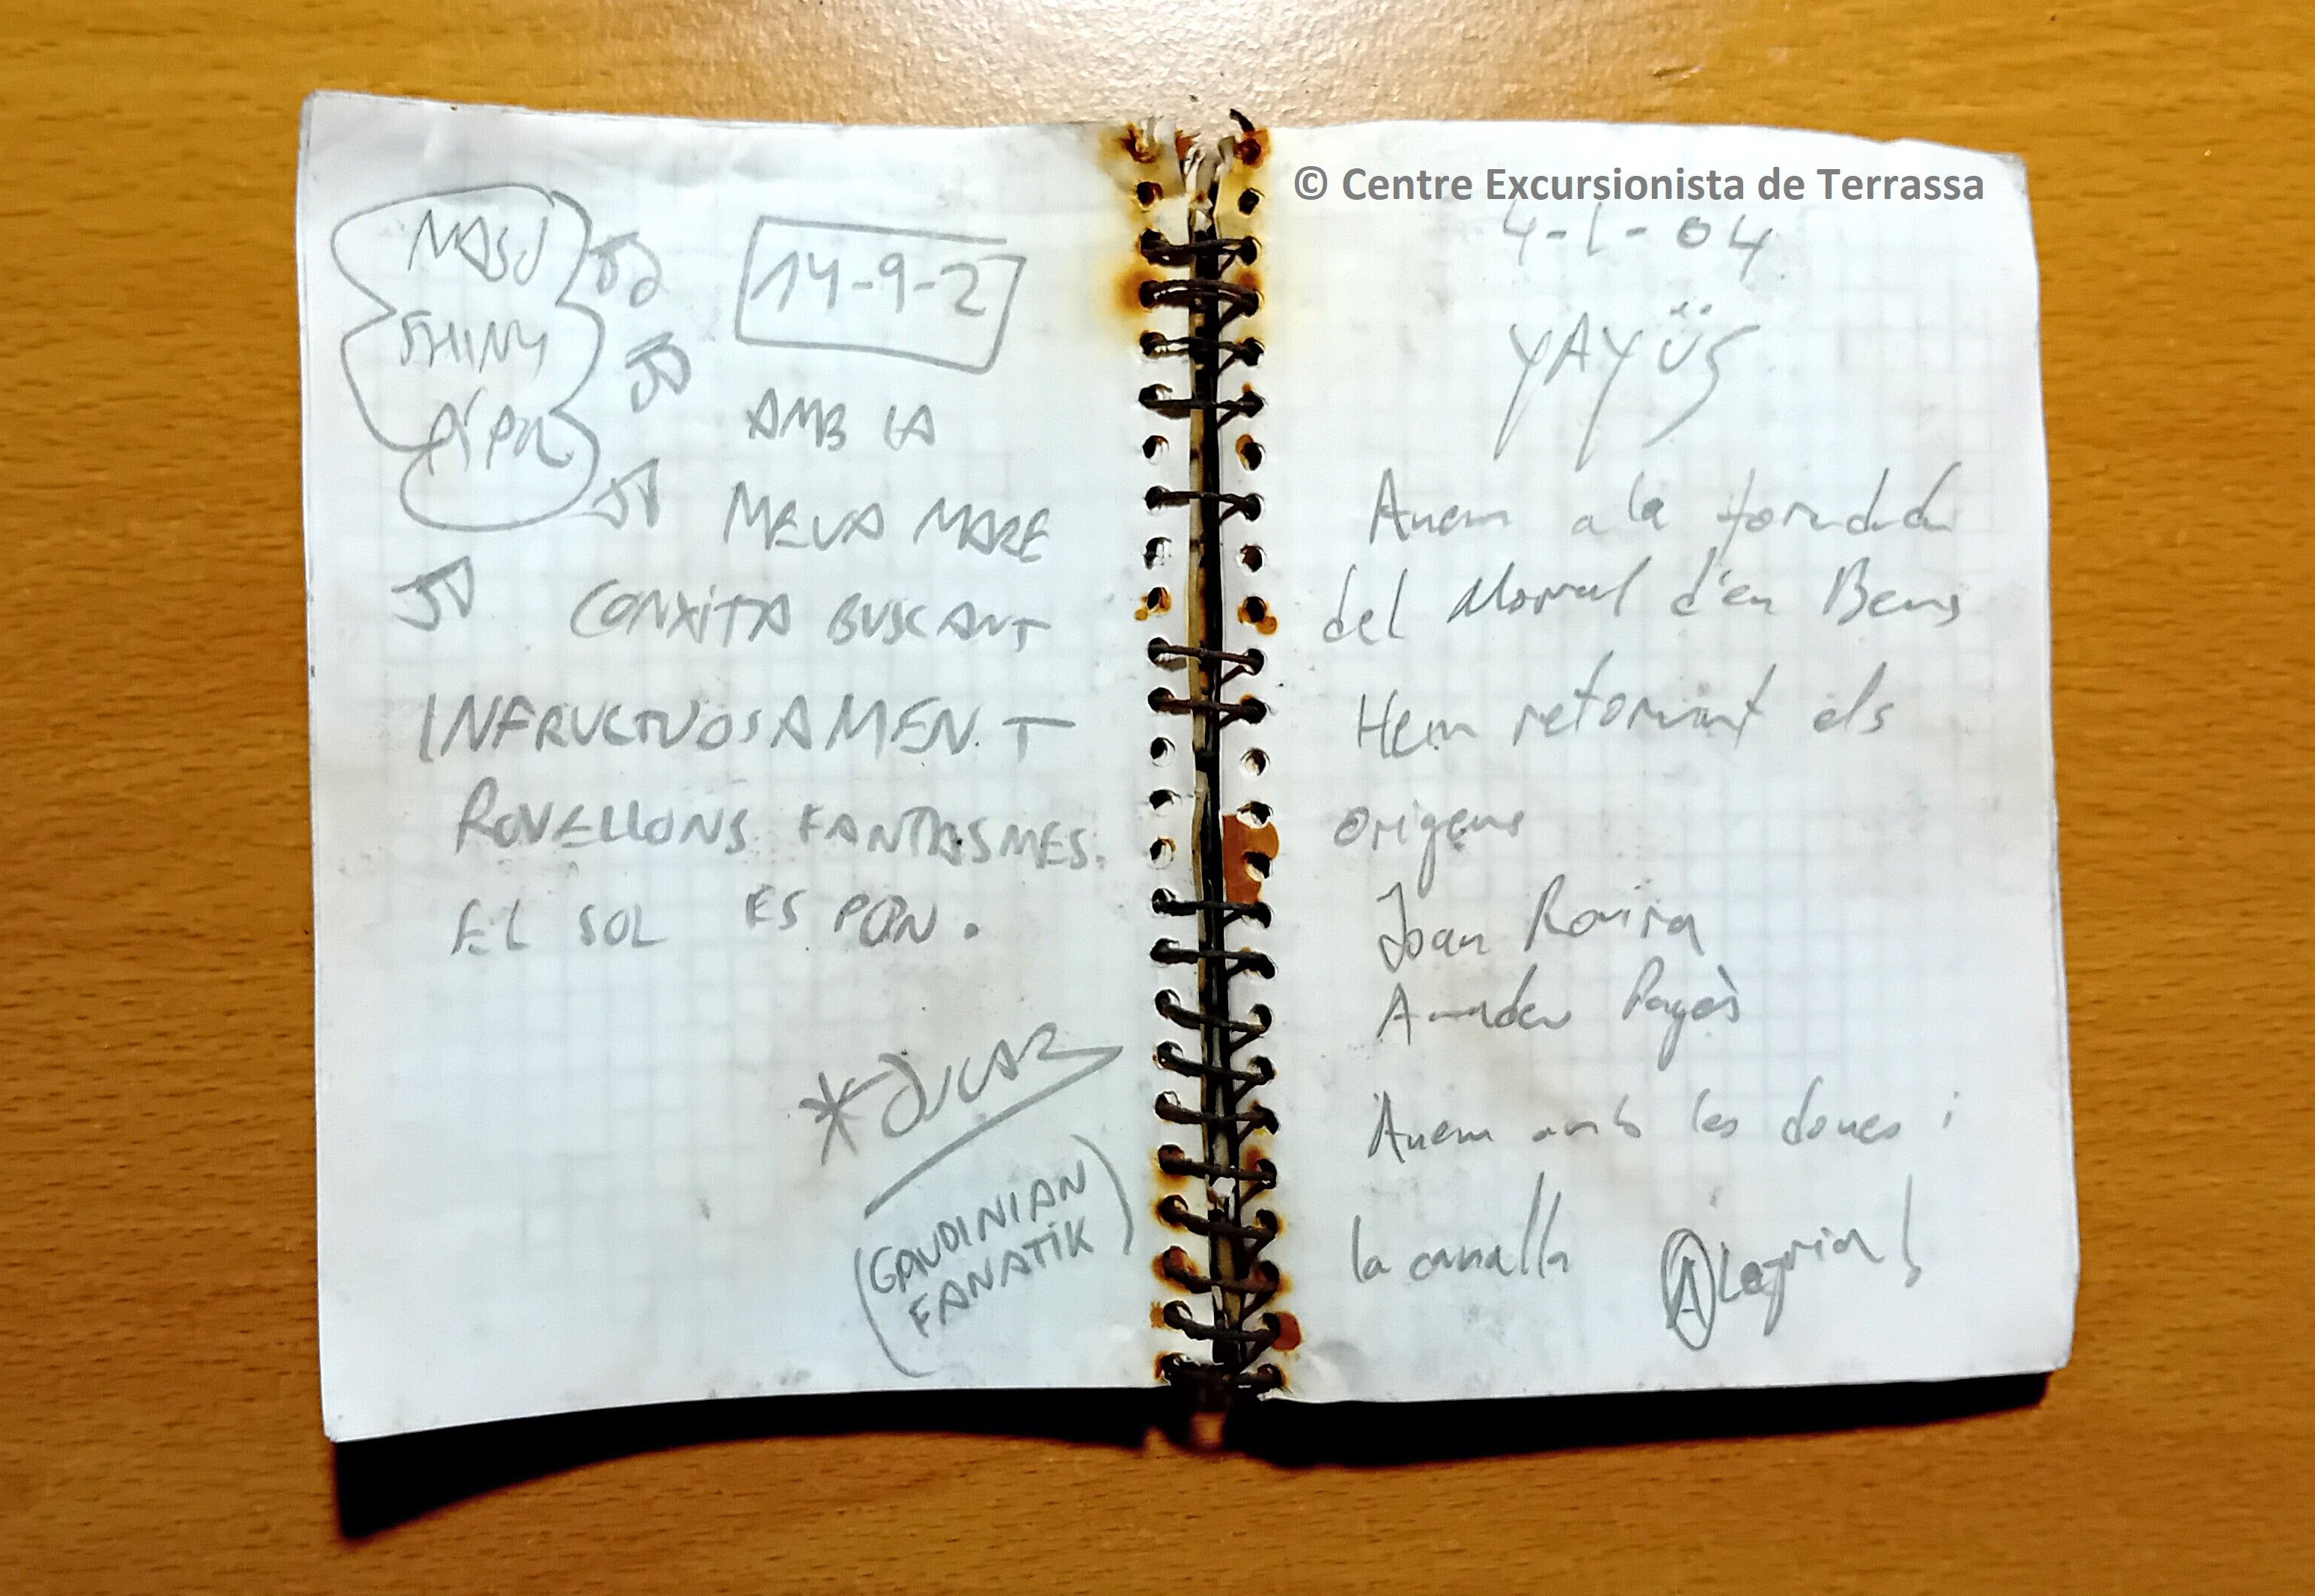 14-9-2
AMB LA
MEVA MARE
CONXITA BUSCANT
INFRUCTUOSAMENT
ROVELLONS FANTASMES.
EL SOL ES PON.
(GAUDINIAN
FANATIK)
© Centre Excursionista de Terrassa
4-1-04
YAYÜS
Anem a la
del Morral d'en
Hem retornat als
origens
Joan Rovira
Amadeu Pagès
Anem amb les dones i
la canalla Alegria!